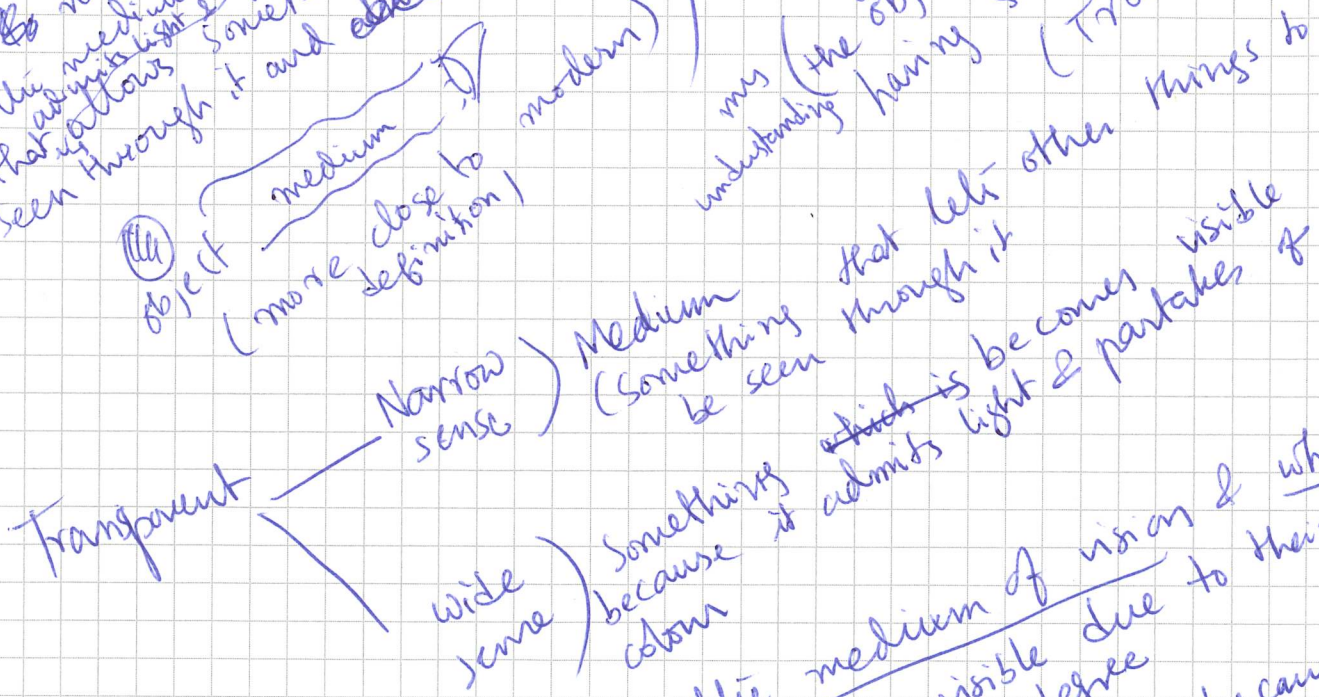 medium
admits light &
that allows
seen through it and
medium
object
(more close to
definition)
modern)
my (the
understanding having
Transparent
Narrow
sense)
Medium
(something that lets other things to
be seen through it
wide
sense)
Something which is becomes visible
because it admits light & partakes of
colour
medium of vision &
visible due to their
degree